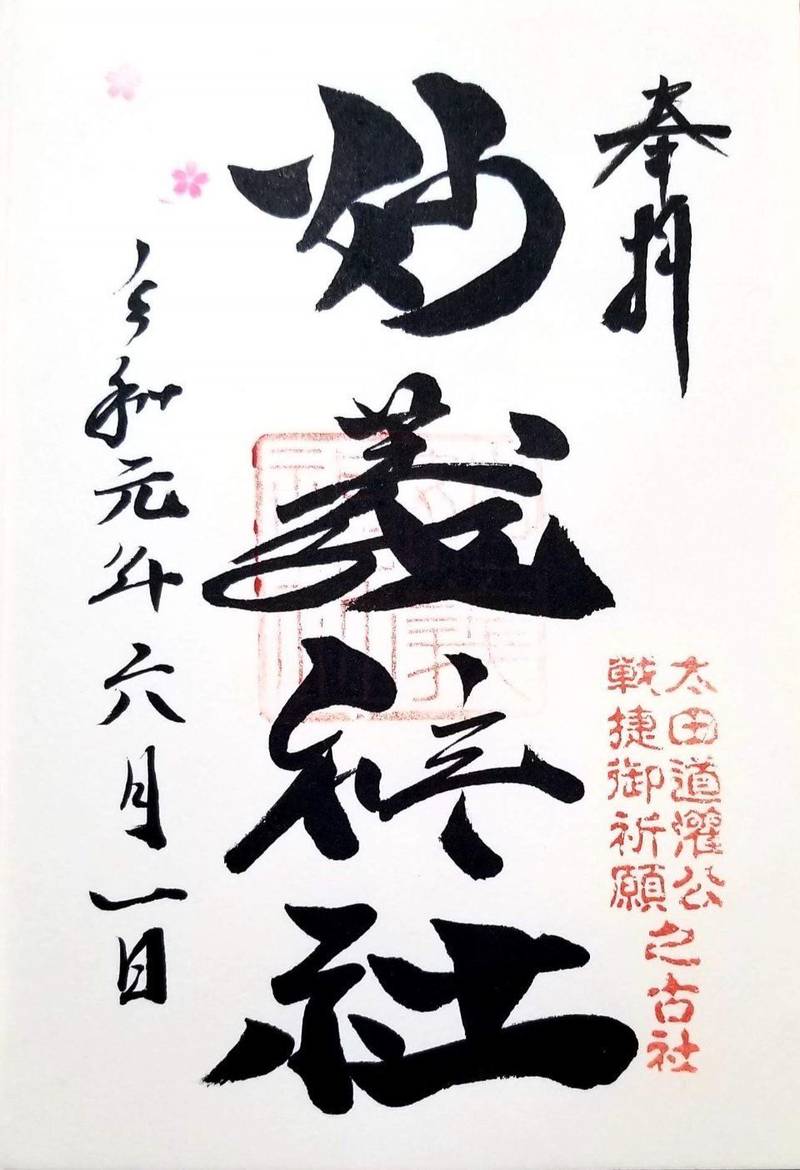 奉拝
太田道灌公
戦捷御祈願
之古社
妙義神社
令和元年六月一日